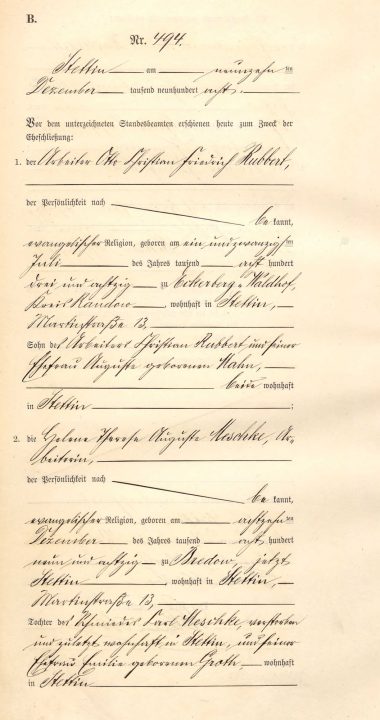 B.
Nr. 494.
Stettin am neunzehnten
Dezember tausend neunhundert acht.
Vor dem unterzeichneten Standesbeamten erschienen heute zum Zweck der
Eheschließung:
1. der Arbeiter Otto Christian Friedrich Rubbert,
der Persönlichkeit nach
be kannt,
evangelischer Religion, geboren am ein und zwanzigsten
Juli des Jahres tausend acht hundert
drei und achtzig zu Eckerberg-Waldhof,
Kreis Randow, wohnhaft in Stettin,
Martinstraße 13,
Sohn des Arbeiters Christian Rubbert und seiner
Ehefrau Auguste geborenen Hahn,
beide wohnhaft
in Stettin;
2. die Helene Therese Auguste Meschke, Ar-
beiterin,
der Persönlichkeit nach
be kannt,
evangelischer Religion, geboren am achtzehnten
Dezember des Jahres tausend acht hundert
neun und achtzig zu Bredow, jetzt
Stettin, wohnhaft in Stettin,
Martinstraße 13,
Tochter des Schmiedes Karl Meschke, verstorben
und zuletzt wohnhaft in Stettin, und seiner
Ehefrau Emilie geborenen Groth wohnhaft
in Stettin